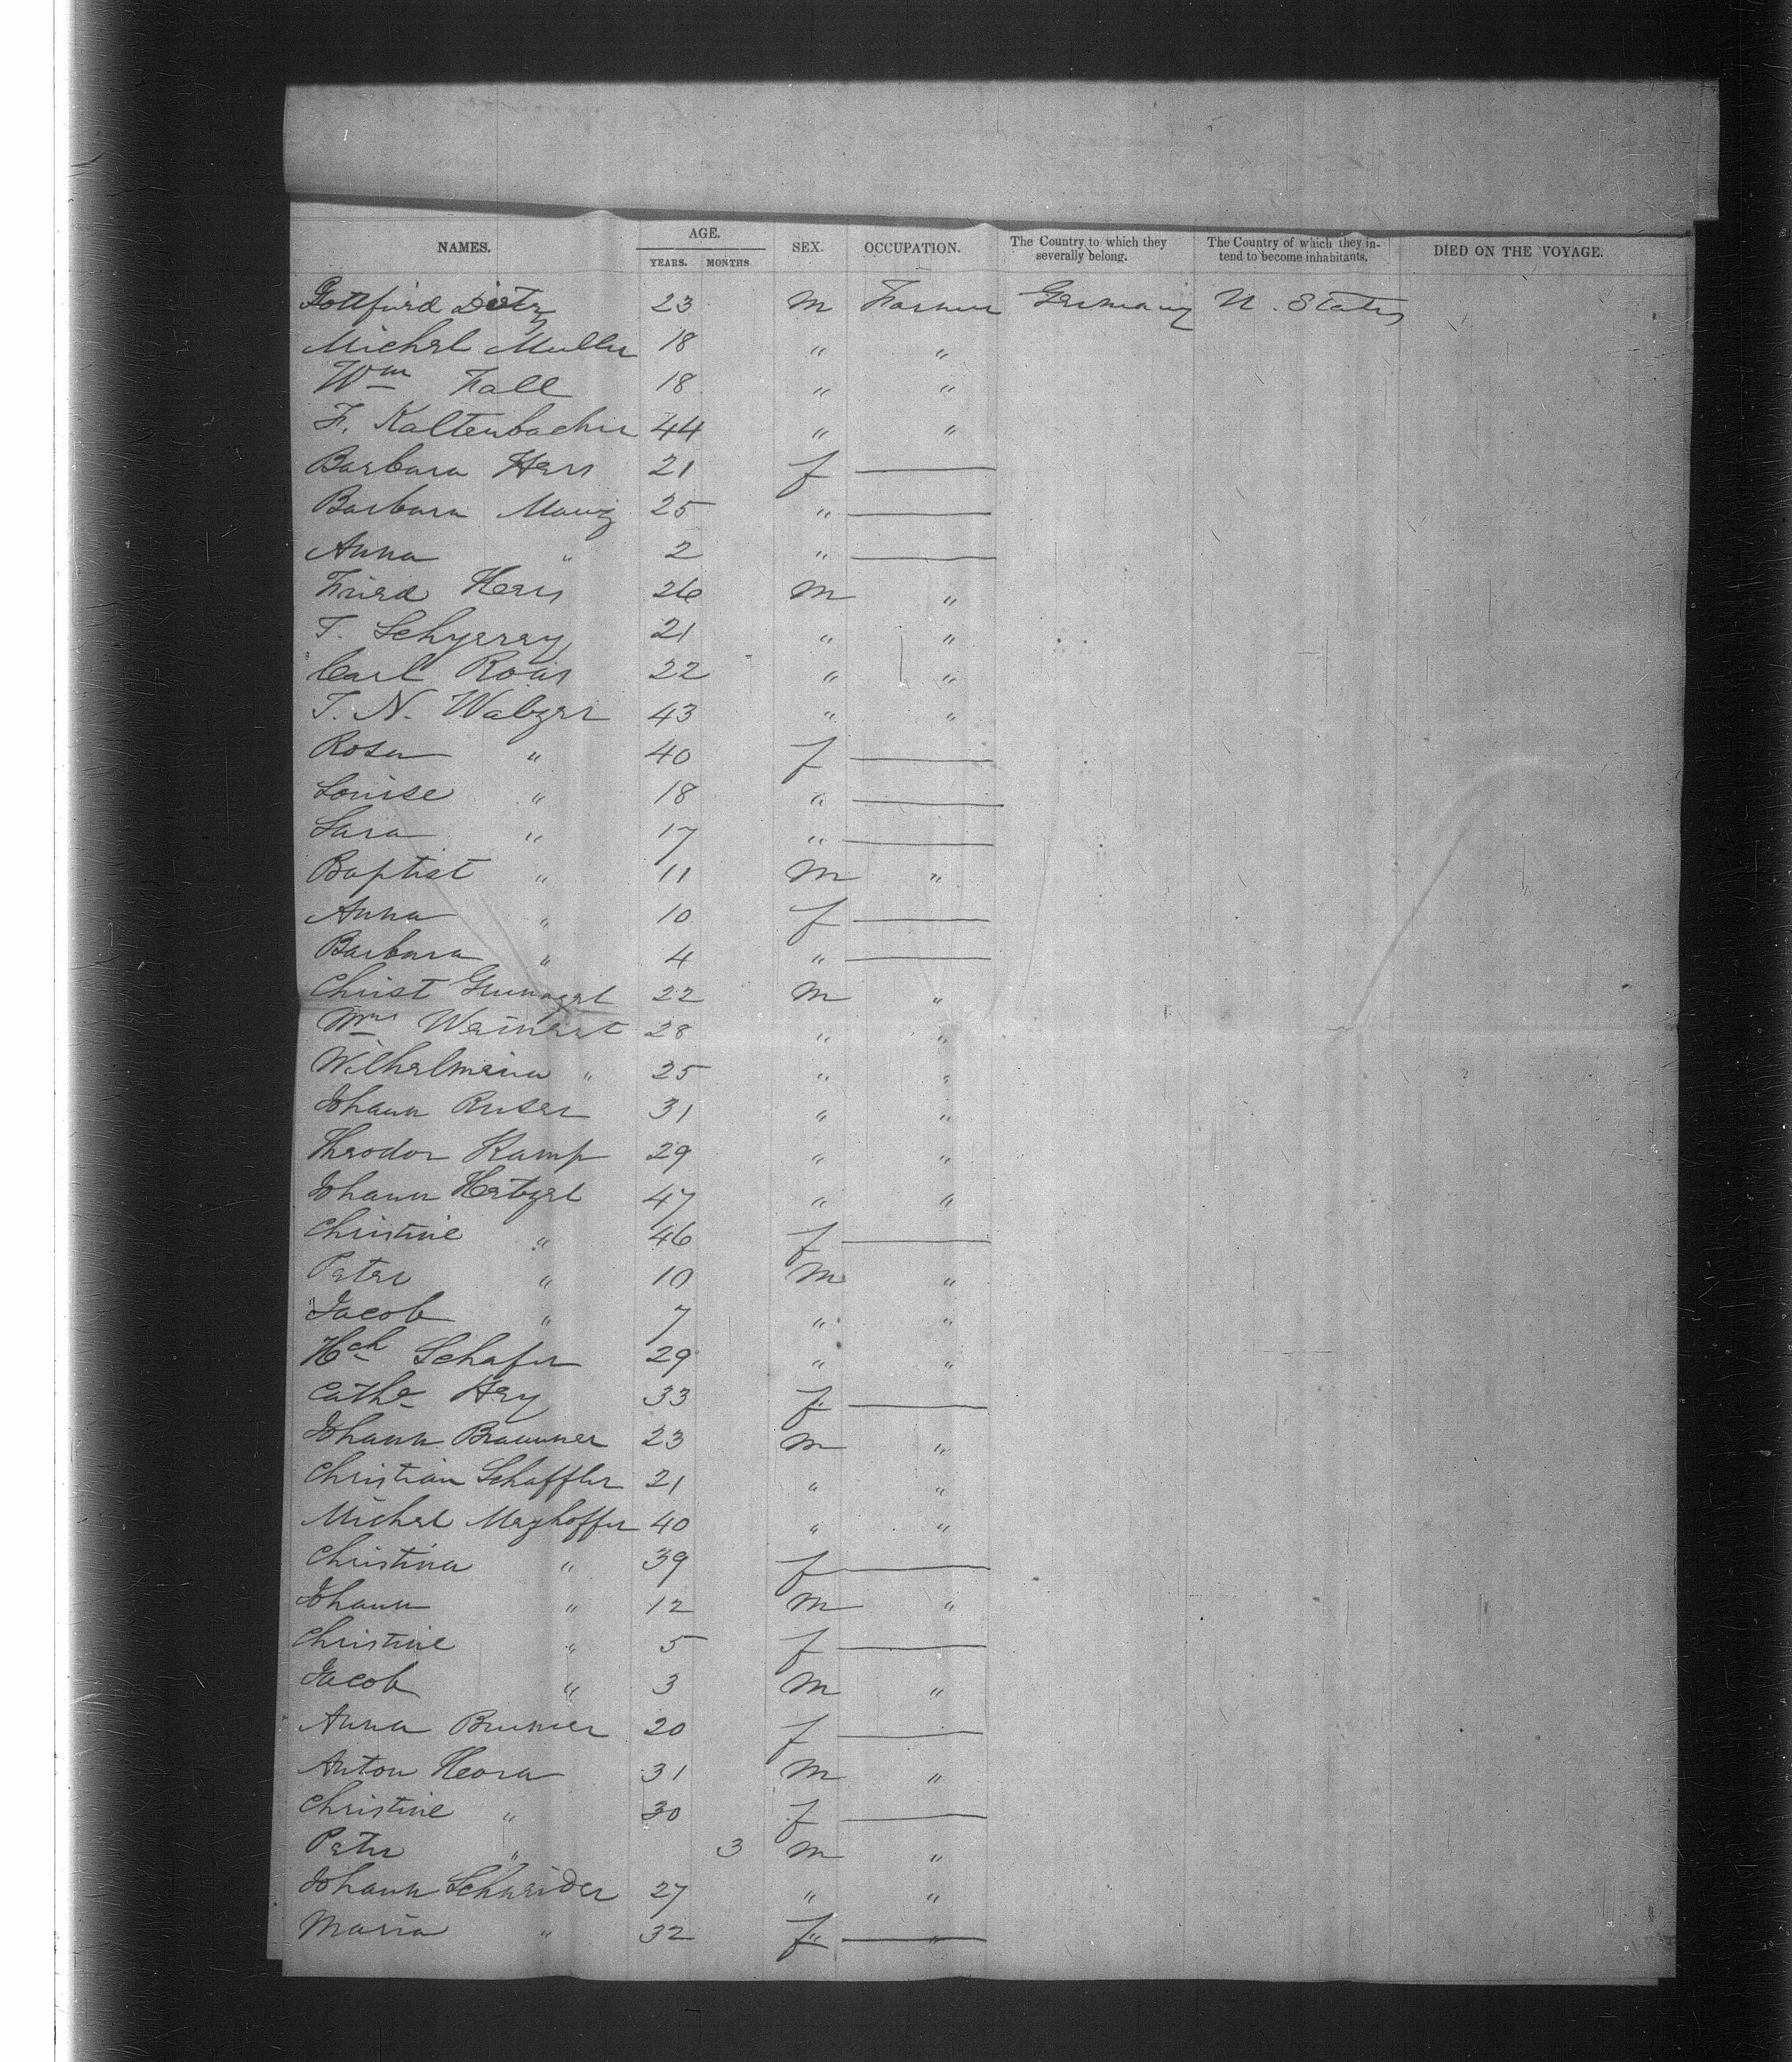 NAMES. AGE. SEX. OCCUPATION. The Country to which they severally belong. The Country of which they intend to become inhabitants. DIED ON THE VOYAGE.
YEARS. MONTHS
Gottfried Dietz 23 m Farmer Germany U. States
Michel Muller 18 " "
Wm Fall 18 " "
F. Kaltenbacher 44 " "
Barbara Hers 21 f
Barbara 25 "
Anna " 2 "
Fried Hers 26 m "
T. 21 " "
Carl 22 " "
T. N. Walzer 43 " "
Rosa " 40 f
Louise " 18 "
Sara " 17 "
Baptist " 11 m "
Anna " 10 f
Barbara " 4 "
Christ 22 m "
Weinert 28 " "
Wilhelmina " 25 " "
Johann Ruser 31 " "
Theodor Kamp 29 " "
Johann Hetzel 47 " "
Christine " 46 f
Peter " 10 m "
Jacob " 7 " "
Hch Schafer 29 " "
Cathe Hey 33 f
Johann Braunner 23 m "
Christian Schaffler 21 " "
Michel Mezhoffer 40 " "
Christina " 39 f
Johann " 12 m "
Christine " 5 f
Jacob " 3 m "
Anna Brunner 20 f
Anton Heora 31 m "
Christine " 30 f
Peter " 3 m "
Johann Schneider 27 " "
Maria " 32 f "